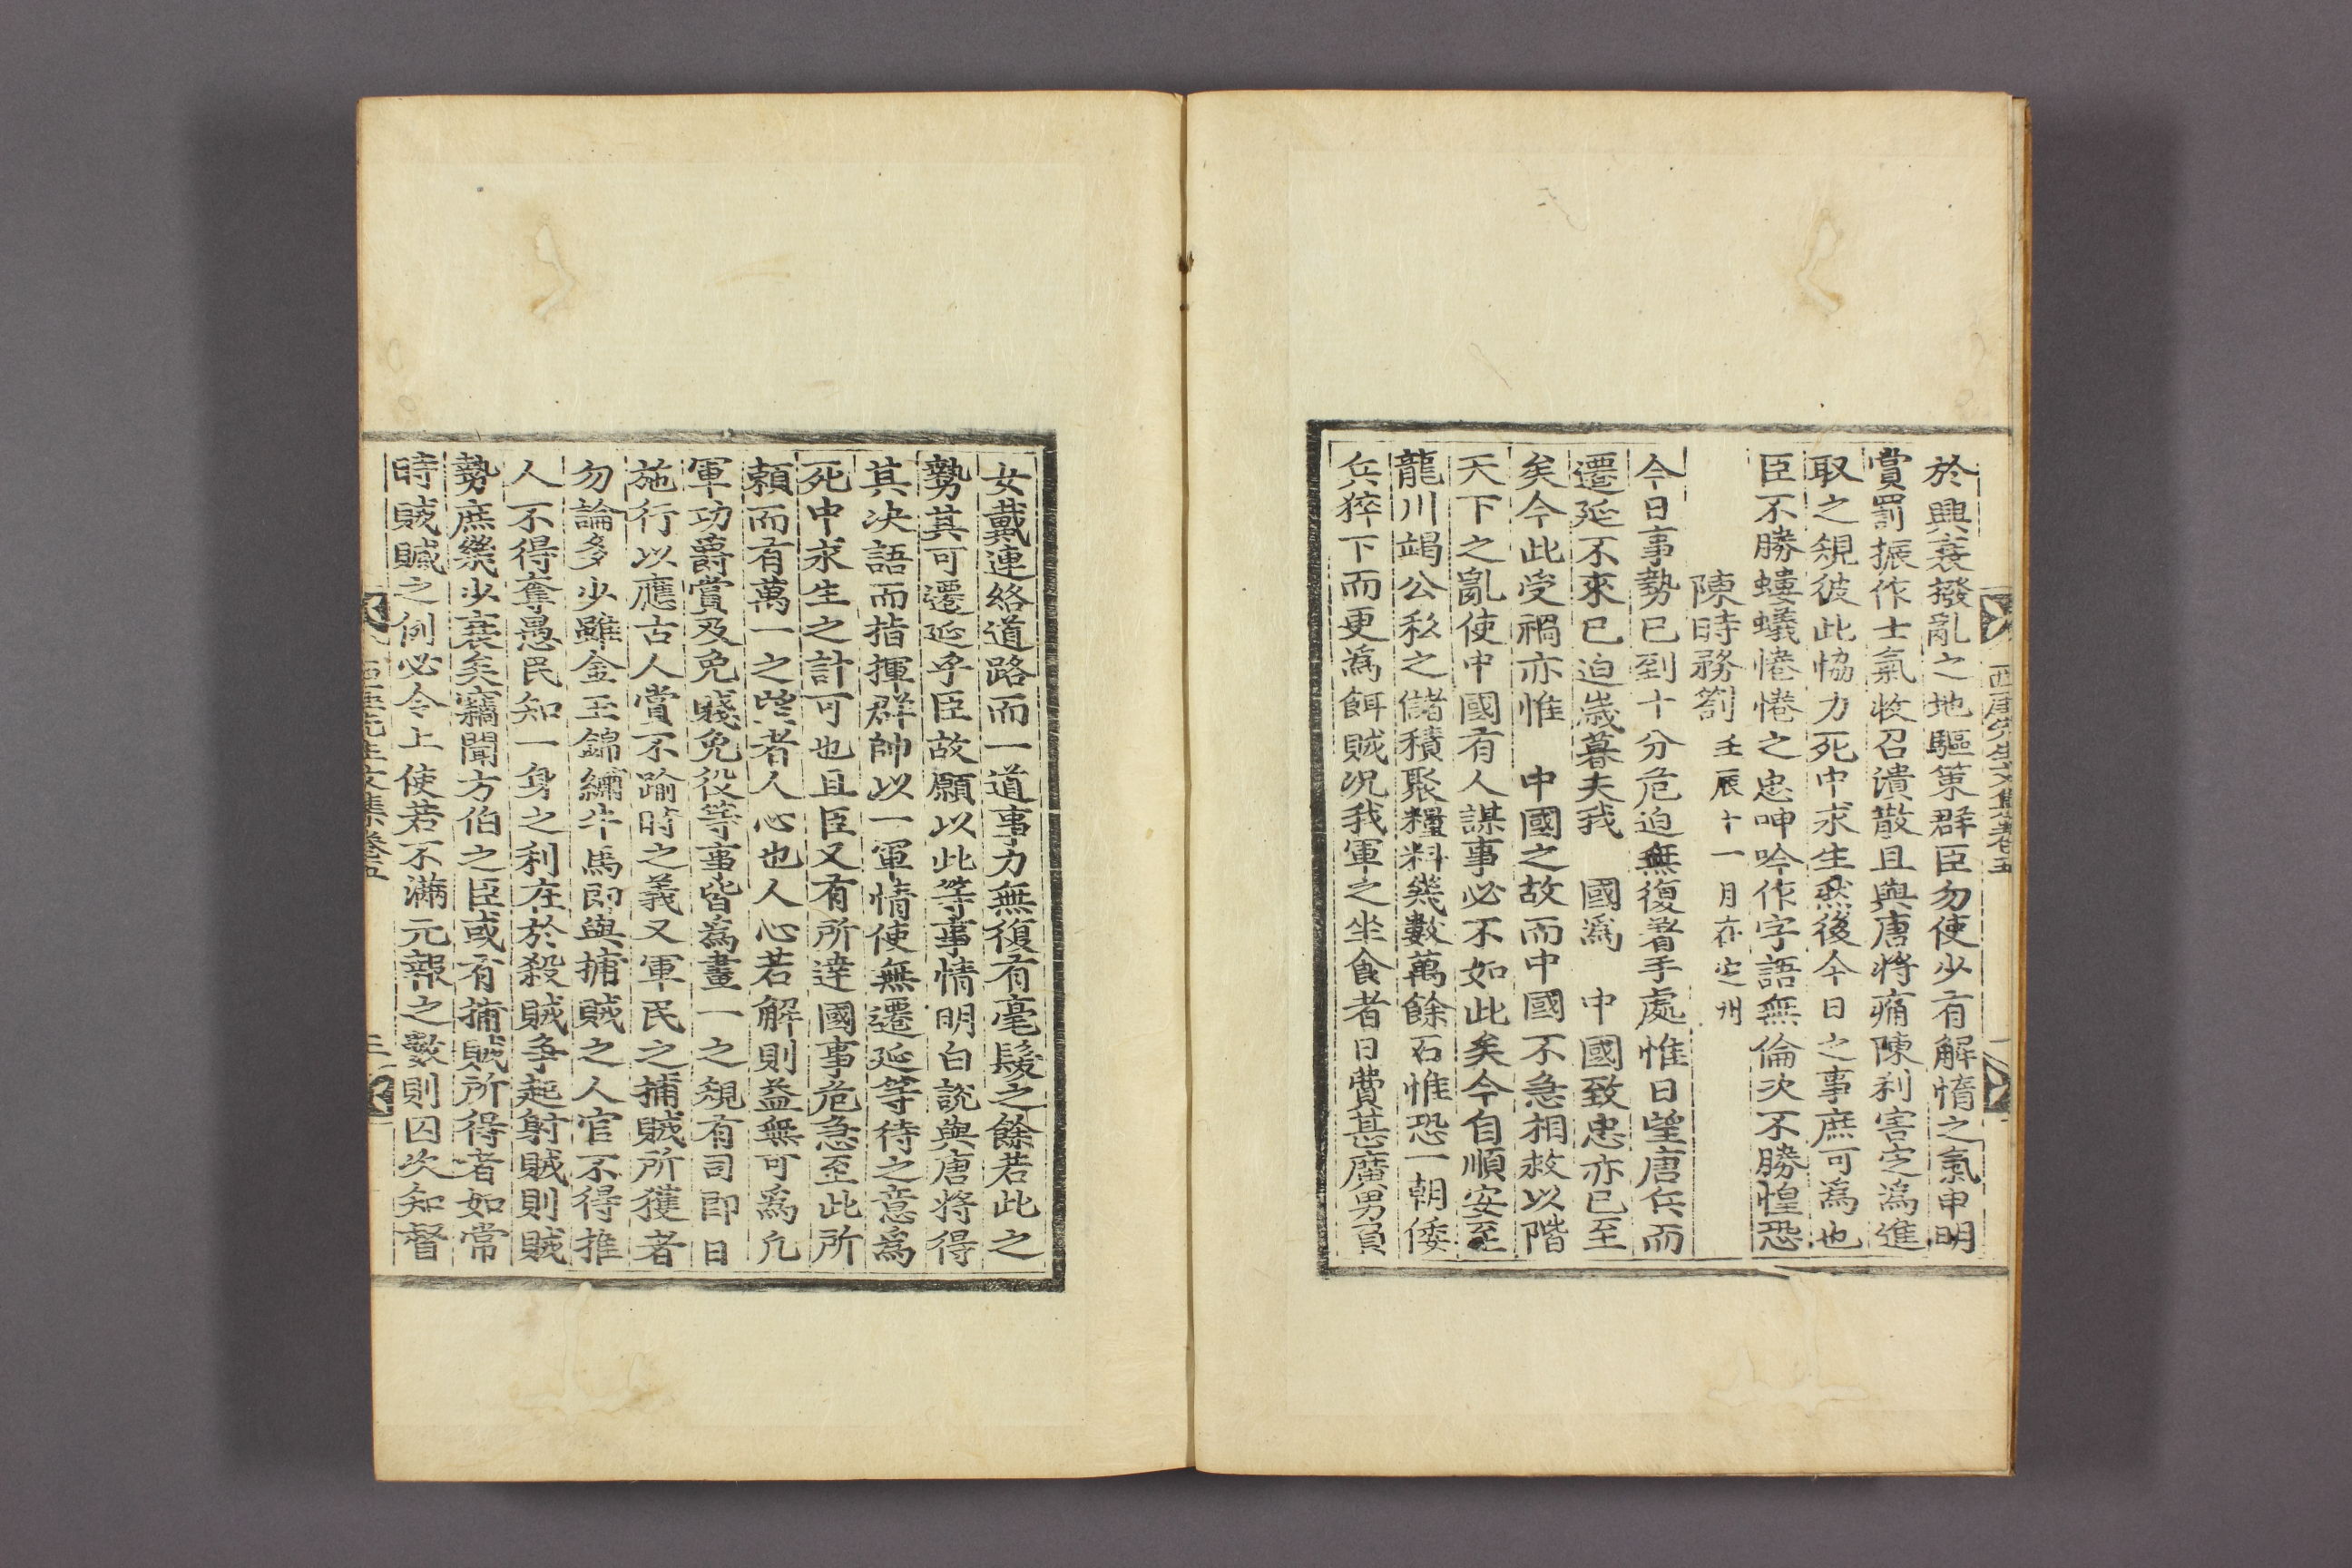 西厓先生文集卷五
於興衰撥亂之地驅策群臣勿使少有解惰之氣申明
賞罰振作士氣收召潰散且與唐將痛陳利害定爲進
取之規彼此恊力死中求生然後今日之事庶可爲也
臣不勝螻蟻惓惓之忠呻吟作字語無倫次不勝惶恐
陳時務劄 壬辰十一月在定州
今日事勢已到十分危迫無復着手處惟日望唐兵而
遷延不來已迫歲暮夫我 國爲 中國致忠亦已至
矣今此受禍亦惟 中國之故而中國不急相救以階
天下之亂使中國有人謀事必不如此矣今自順安至
龍川竭公私之儲積聚糧料幾數萬餘石惟恐一朝倭
兵猝下而更爲餌賊况我軍之坐食者日費甚廣男負
女戴連絡道路而一道事力無復有毫髮之餘若此之
勢其可遷延乎臣故願以此等事情明白說與唐將得
其决語而指揮群帥以一軍情使無遷延等待之意爲
死中求生之計可也且臣又有所達國事危急至此所
賴而有萬一之望者人心也人心若解則益無可爲凡
軍功爵賞及免賤免役等事皆爲畫一之規有司卽日
施行以應古人賞不踰時之義又軍民之捕賊所獲者
勿論多少雖金玉錦繡牛馬卽與捕賊之人官不得推
人不得奪愚民知一身之利在於殺賊爭起射賊則賊
勢庶幾少衰矣竊聞方伯之臣或有捕賊所得者如常
時賊贓之例必令上使若不滿元報之數則囚次知督
西厓先生文集卷五 三